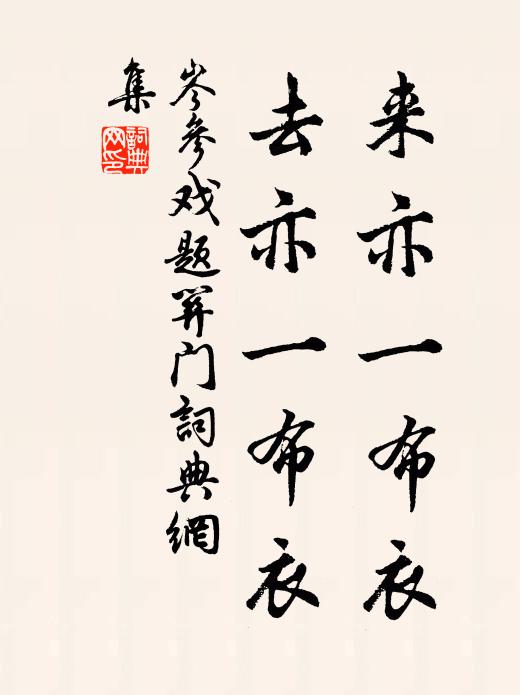 来亦一布衣
去亦一布衣
岑参戏题关门詞典網
集
詞典网印